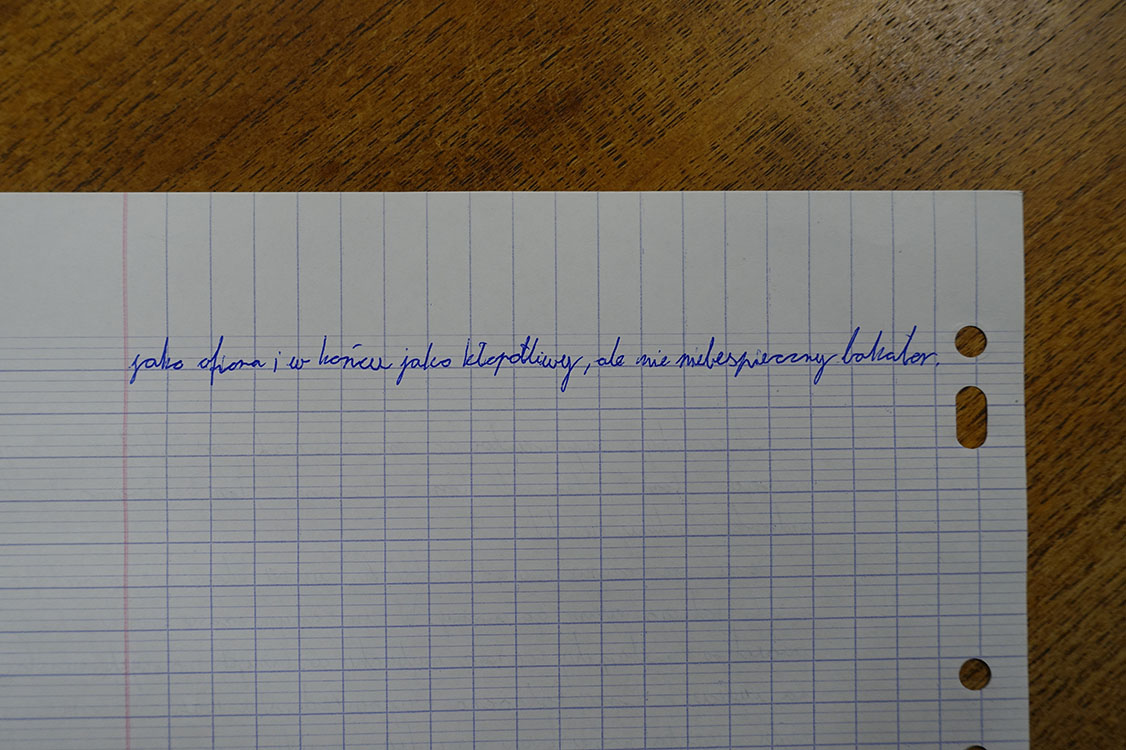 jako ofiara i w końcu jako kłopotliwy, ale nie niebespieczny lokator.